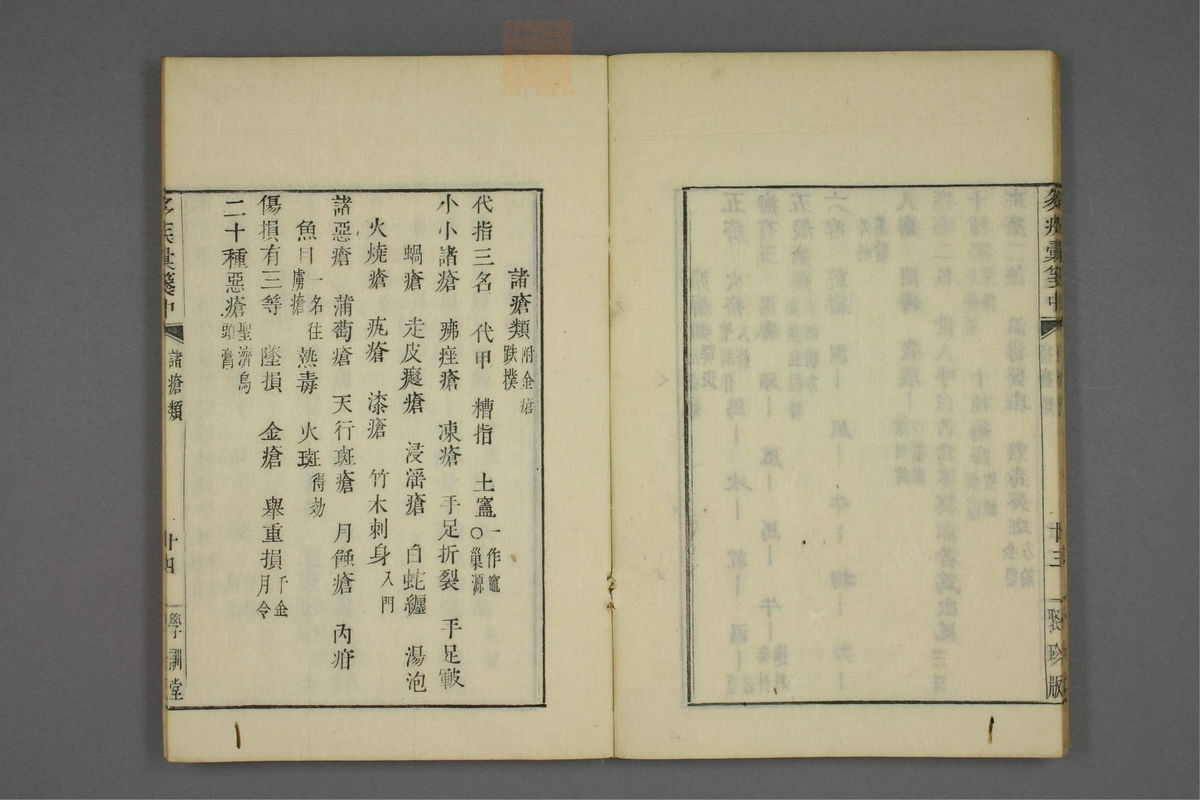 廿三
聚珍版
諸瘡類 附金瘡跌撲
代指三名 代甲 糟指 土竈 一作竈○巢源
小小諸瘡 疿痤瘡 凍瘡 手足折裂 手足皸
蝸瘡 走皮癮瘡 浸淫瘡 白蛇纏 湯泡
火燒瘡 㾦瘡 漆瘡 竹木刺身 入門
諸惡瘡 蒲萄瘡 天行斑瘡 月蝕瘡 丙疳
魚目 一名往虜瘡 熱毒 火斑 得効
傷損有三等 墜損 金瘡 舉重損 千金月令
二十種惡瘡 聖濟烏頭膏
疾彙箋中
諸瘡類
廿四
學訓堂